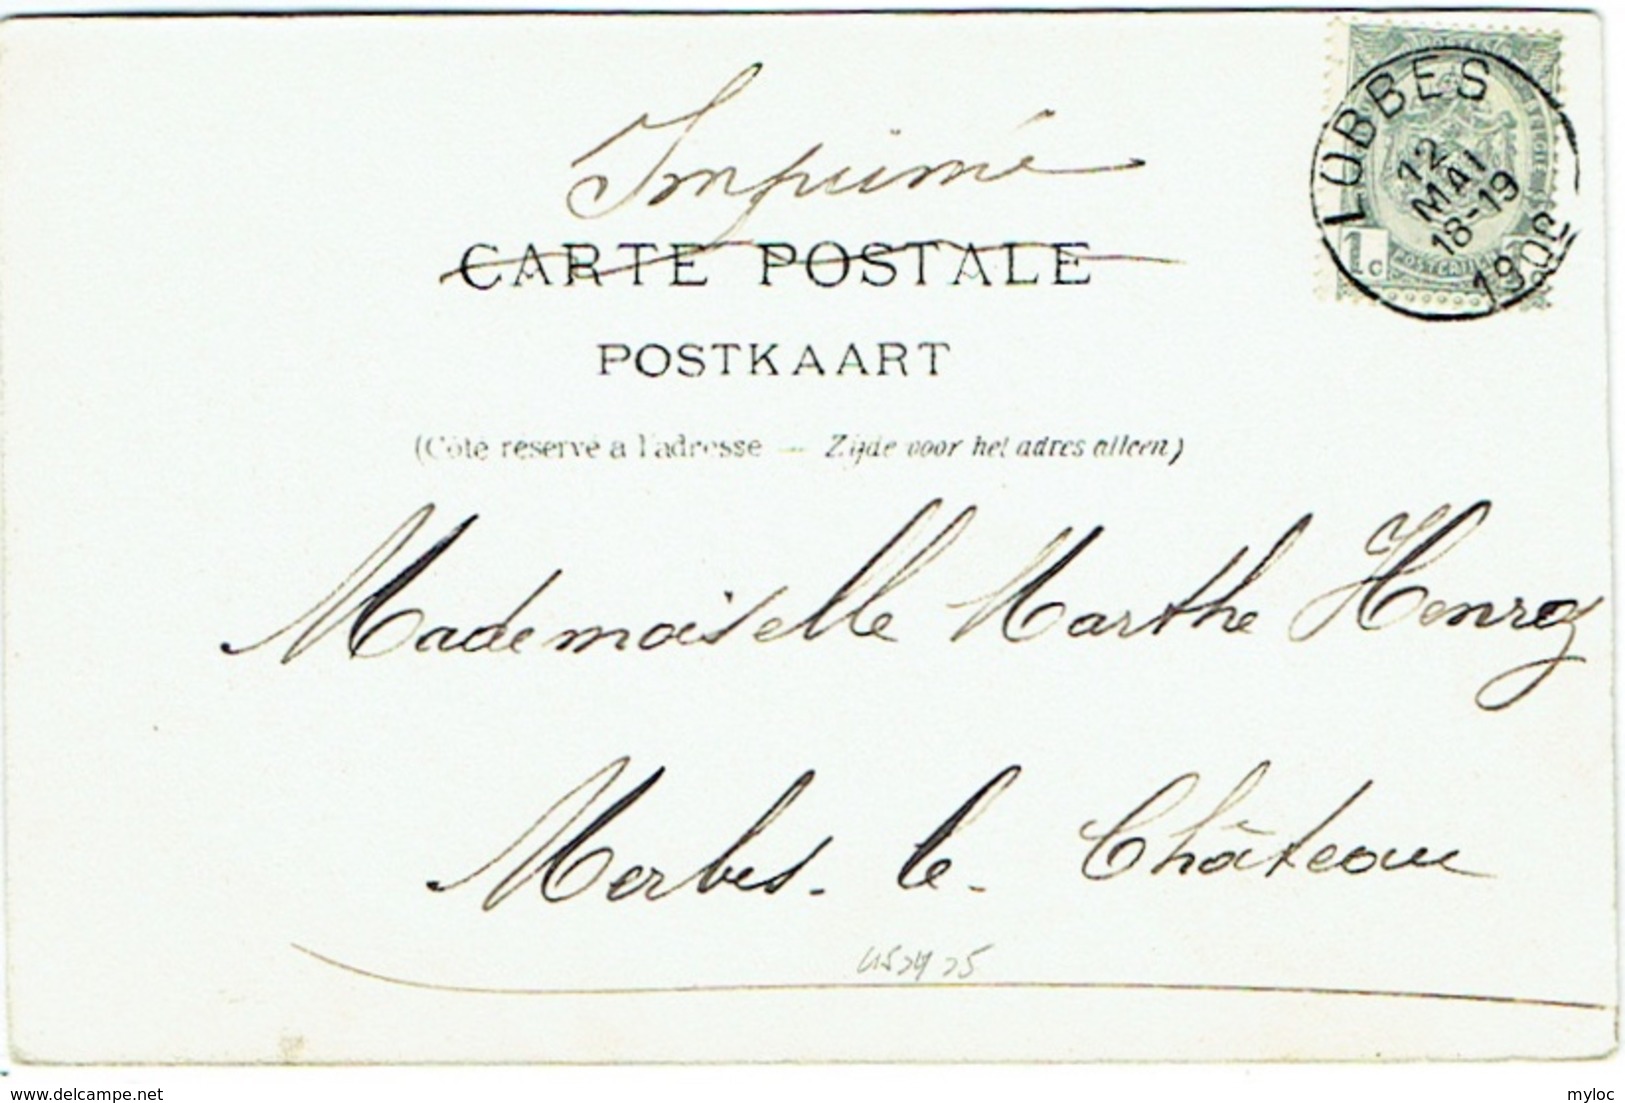 Imprimé
CARTE POSTALE
POSTKAART
(Côté réservé a l'adresse — Zijde voor het adres alleen)
LOBBES
12
MAI
18-19
1902
1c
Mademoiselle Marthe Henroz
Merbes-le-Château
delcampe.net
myloc